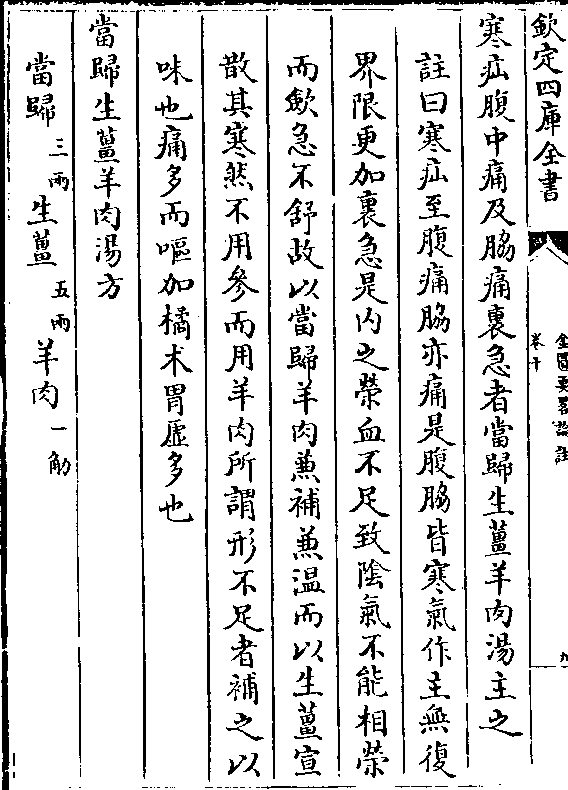 欽定四庫全書
金匱要畧論註
卷十
九
寒疝腹中痛及脇痛裏急者當歸生薑羊肉湯主之
註曰寒疝至腹痛脇亦痛是腹脇皆寒氣作主無復
界限更加裏急是内之榮血不足致陰氣不能相榮
而斂急不舒故以當歸羊肉兼補兼温而以生薑宣
散其寒然不用參而用羊肉所謂形不足者補之以
味也痛多而嘔加橘朮胃虛多也
當歸生薑羊肉湯方
當歸三兩 生薑五兩 羊肉一觔